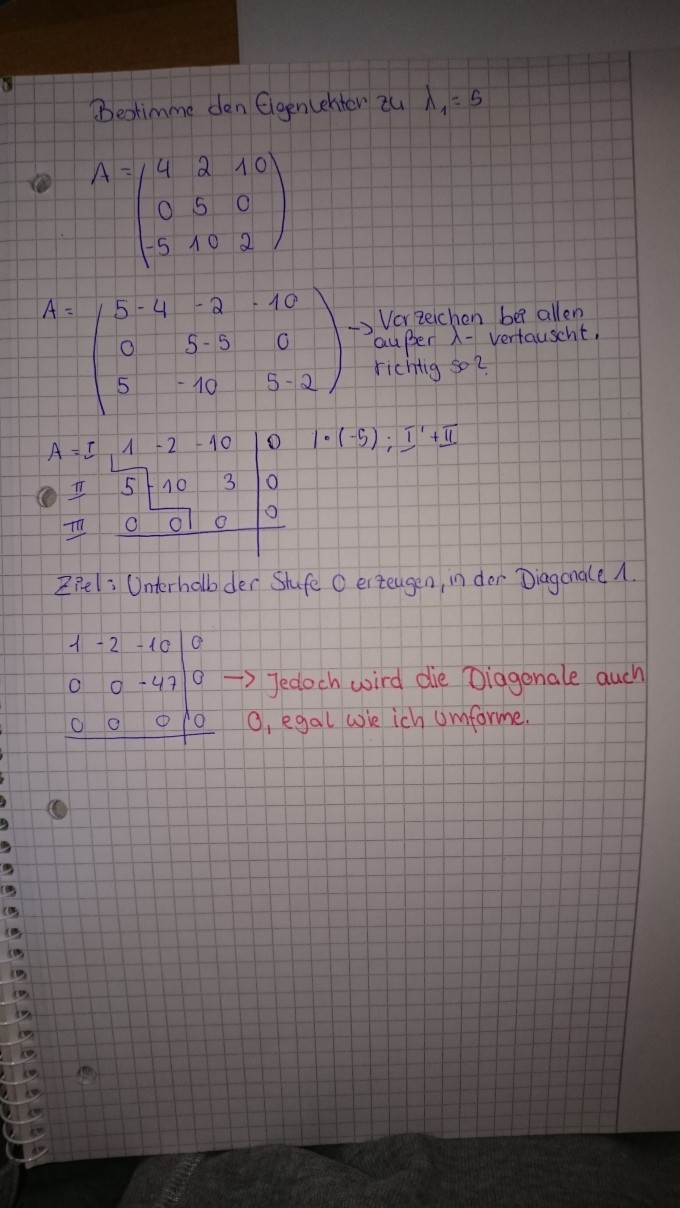 Bestimme den Eigenvektor zu λ₁ = 5
A = ( 4 2 10
0 5 0
-5 10 2 )
A = ( 5-4 -2 -10
0 5-5 0
5 -10 5-2 )
→ Vorzeichen bei allen
außer λ- vertauscht.
richtig so?
A = I 1 -2 -10 | 0 | · (-5) ; I' + II
II 5 -10 3 | 0
III 0 0 0 | 0
Ziel: Unterhalb der Stufe 0 erzeugen, in der Diagonale 1.
1 -2 -10 | 0
0 0 -47 | 0 → Jedoch wird die Diagonale auch
0 0 0 | 0 0, egal wie ich umforme.